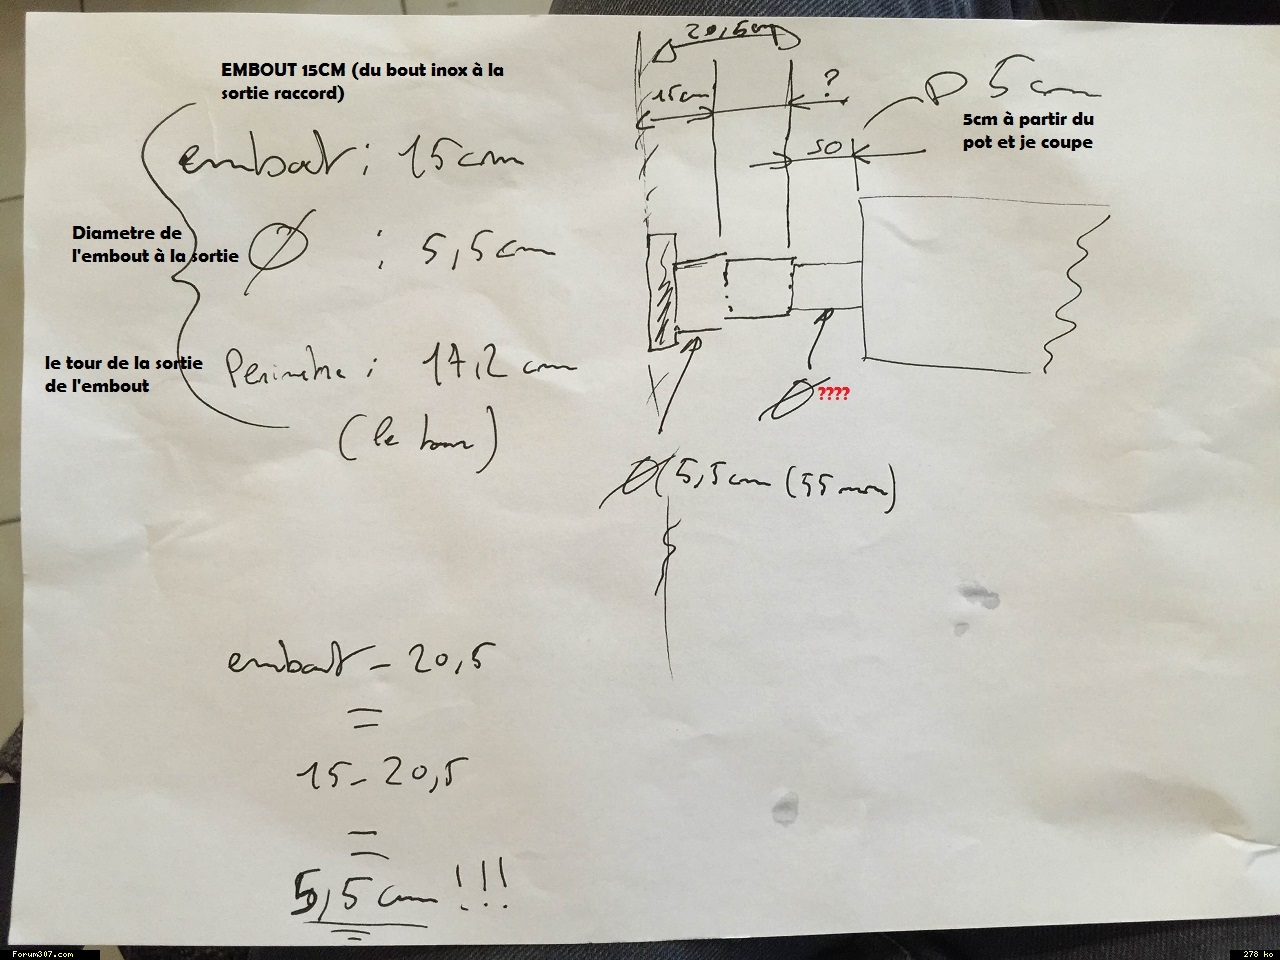 EMBOUT 15CM (du bout inox à la
sortie raccord)
embout : 15cm
Diametre de
l'embout à la sortie
Ø : 5,5cm
le tour de la sortie
de l'embout
Perimetre : 17,2 cm
(le tour)
embout - 20,5
=
15-20,5
=
5,5cm !!!
20,5cm
15cm
?
50
5cm
5cm à partir du
pot et je coupe
Ø ????
Ø 5,5cm (55mm)
Forum307.com
278 ko